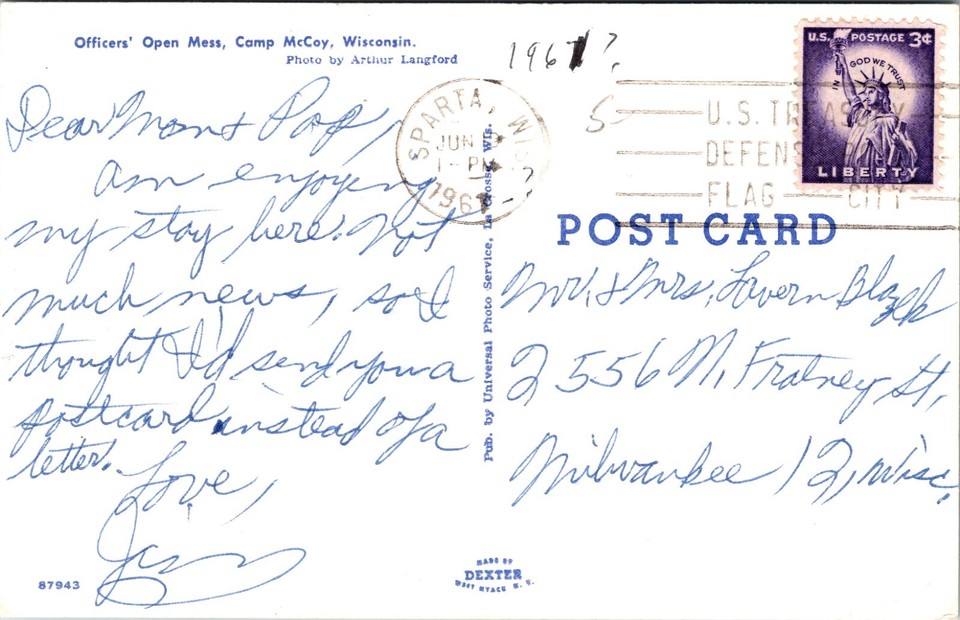 Officers' Open Mess, Camp McCoy, Wisconsin.
Photo by Arthur Langford
1967?
U.S. POSTAGE 3¢
IN GOD WE TRUST
LIBERTY
SPARTA, WIS.
JUN
1-PM
196
U.S. TREASURY
DEFENS
FLAG CITY
Dear Mom & Pop,
Am enjoying
my stay here. Not
much news, so I
thought I'd send you a
postcard instead of a
letter.
Love,
Pub. by Universal Photo Service, La Crosse, Wis.
POST CARD
Mr. & Mrs. Lavern Blazek
2556 N. Fratney St.
Milwaukee 12, Wisc.
87943
MADE BY
DEXTER
WEST NYACK N. Y.